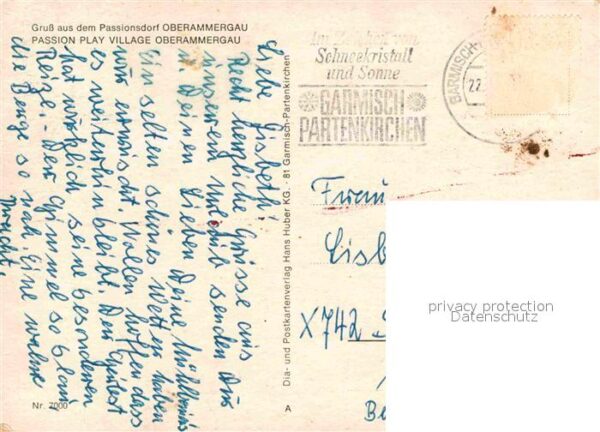 Gruß aus dem Passionsdorf OBERAMMERGAU
PASSION PLAY VILLAGE OBERAMMERGAU
Liebe Lisbeth!
Recht herzliche Grüsse aus
unserem Urlaub senden Dir
u. Deinen Lieben Deine
Ein selten schönes Wetter haben
wir erwischt. Wollen hoffen dass
es weiterhin bleibt. Der Herbst
hat wirklich seine besonderen
Reize. Der Himmel so blau
die Berge so nah. Eine wahre
Pracht.
Nr. 7000
Dia- und Postkartenverlag Hans Huber KG. - 81 Garmisch-Partenkirchen
A
Schneekristall
und Sonne
GARMISCH
PARTENKIRCHEN
GARMISCH
22
Frau
Lisb
X742
privacy protection
Datenschutz